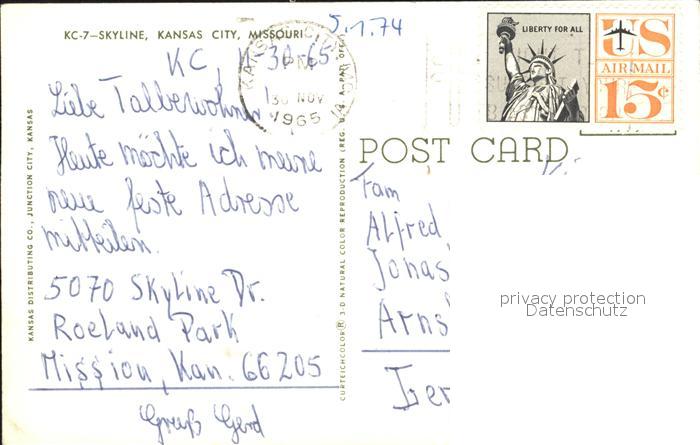 KC-7—SKYLINE, KANSAS CITY, MISSOURI
5.1.74
KC, 11-30-65
Liebe Talbewohner
Heute möchte ich meine
neue feste Adresse
mitteilen.
5070 Skyline Dr.
Roeland Park
Mission, Kan. 66205
Gruß Gerd
KANSAS DISTRIBUTING CO., JUNCTION CITY, KANSAS
CURTEICHCOLOR® 3-D NATURAL COLOR REPRODUCTION (REG. U.S.A. PAT. OFF.)
KANSAS CITY, MO.
PM
30 NOV
1965
LIBERTY FOR ALL
US
AIR MAIL
15¢
POST CARD
Fam
Alfred
Jonas
Arns
Ger
privacy protection
Datenschutz